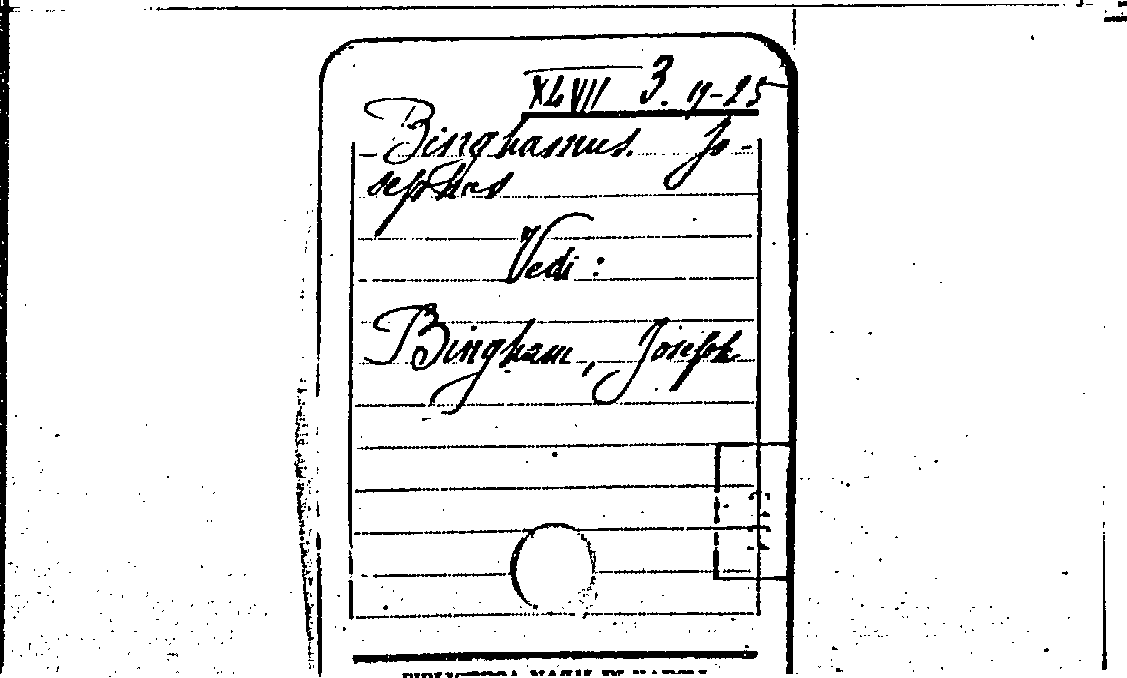 XLVII 3. 17-25
Binghamus. Jo-
sephus
Vedi:
Bingham, Joseph